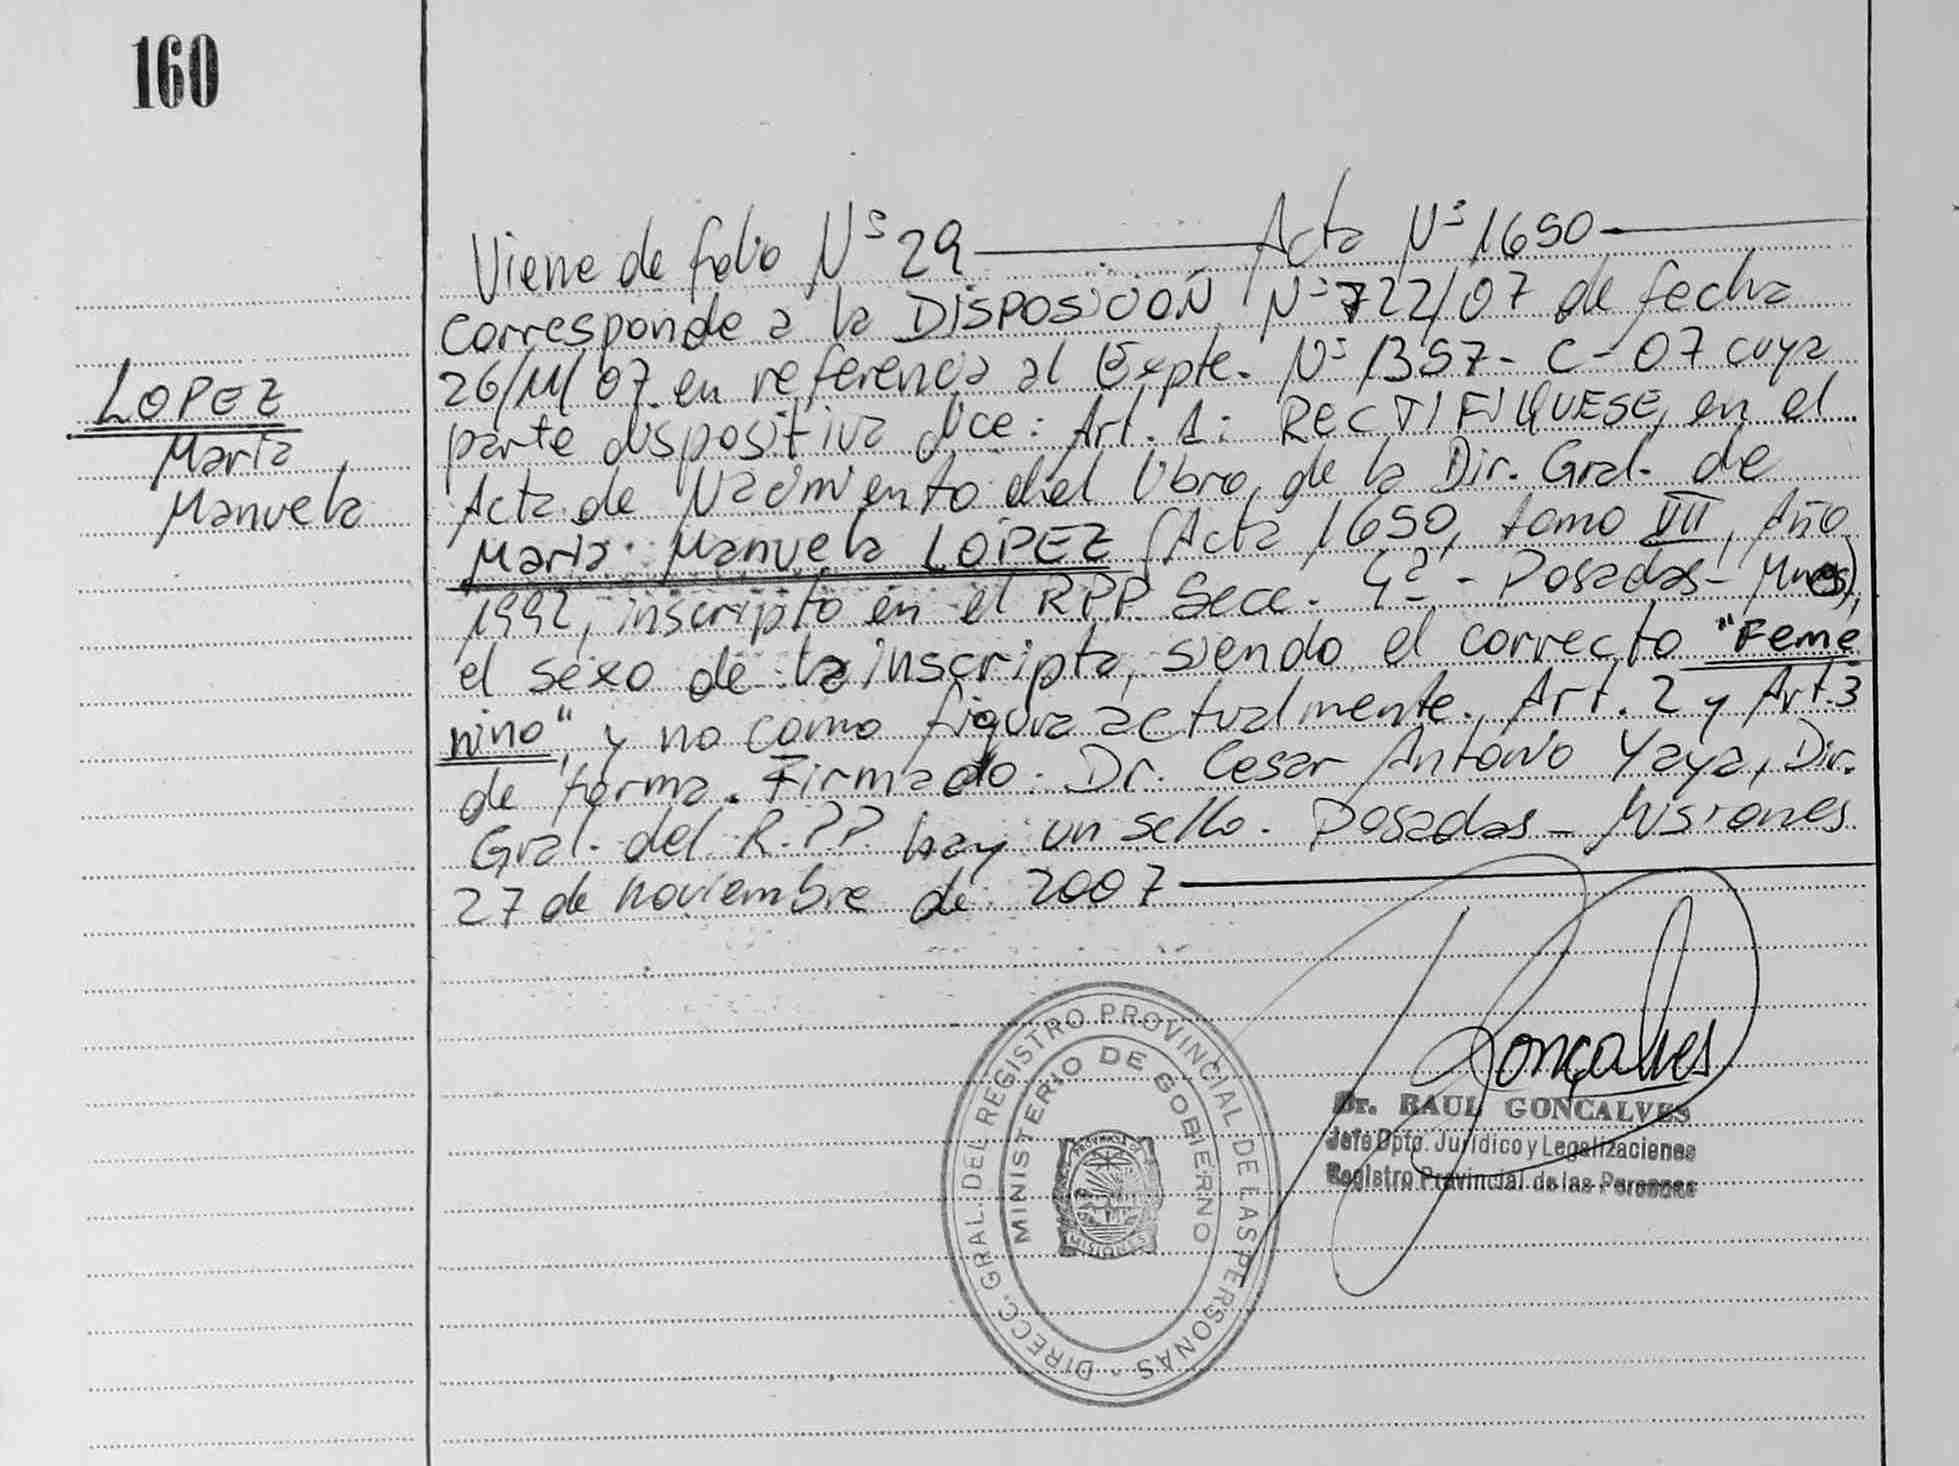 160
Viene de folio Nº 29 — Acta Nº 1650 —
corresponde a la DISPOSICIÓN Nº 722/07 de fecha
26/11/07 en referencia al Expte. Nº 1357-C-07 cuya
parte dispositiva dice: Art. 1: RECTIFIQUESE, en el
Acta de Nacimiento del libro, de la Dir. Gral. de
Maria Manuela LOPEZ (Acta 1650, tomo VII, Año
1992, inscripto en el RPP Secc. 4ª - Posadas - Mnes),
el sexo de la inscripta, siendo el correcto "Feme
nino", y no como figura actualmente. Art. 2 y Art. 3
de forma. Firmado: Dr. Cesar Antonio Yaya, Dir.
Gral. del R.P.P. hay un sello. Posadas - Misiones
27 de noviembre de 2007 —
LOPEZ
Maria
Manuela
DIRECC. GRAL. DEL REGISTRO PROVINCIAL DE LAS PERSONAS
MINISTERIO DE GOBIERNO
PROVINCIA DE
MISIONES
Gonçalves
Dr. RAUL GONÇALVES
Jefe Dpto. Jurídico y Legalizaciones
Registro Provincial de las Personas